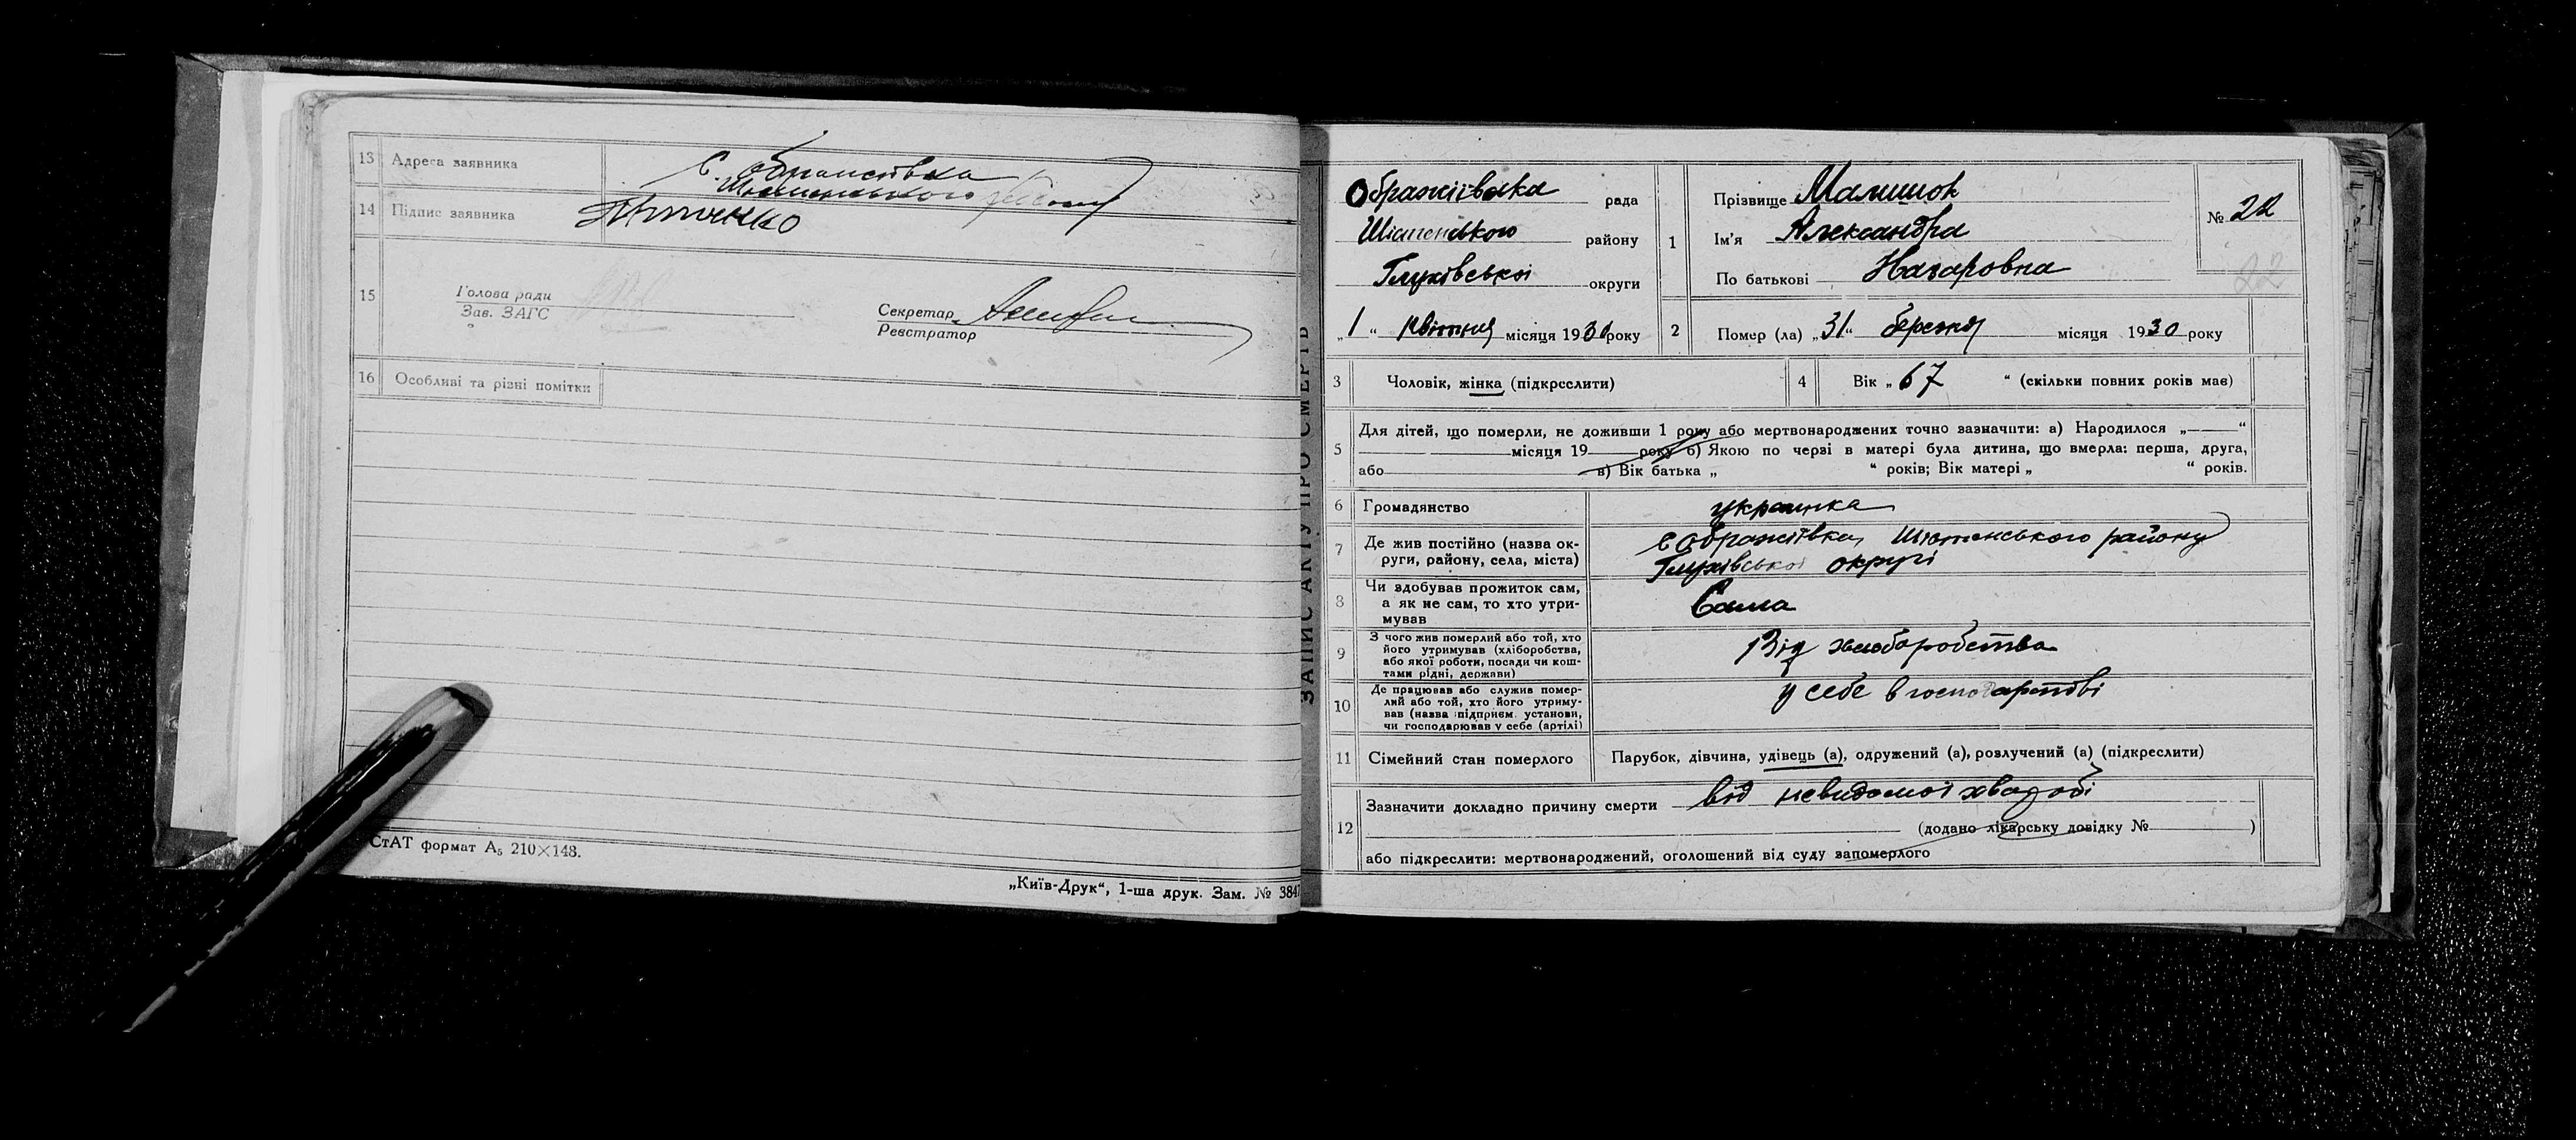 13 Адреса заявника с. Ображіївка
Шостенського району
14 Підпис заявника
15 Голова ради
Зав. ЗАГС
Секретар
Реєстратор
16 Особливі та різні помітки
СтАТ формат А₅ 210×148.
„Київ-Друк“, 1-ша друк. Зам. № 3847
ЗАПИС АКТУ ПРО СМЕРТЬ
Ображіївська рада
Шостенського району
Глухівської округи
„1“ квітня місяця 1930 року
1 Прізвище Малишок
Ім'я Александра
По батькові Назаровна
№ 22
22
2 Помер (ла) „31“ березня місяця 1930 року
3 Чоловік, жінка (підкреслити)
4 Вік „67“ (скільки повних років має)
5 Для дітей, що померли, не доживши 1 року або мертвонароджених точно зазначити: а) Народилося „—“
місяця 19 року б) Якою по черзі в матері була дитина, що вмерла: перша, друга,
або в) Вік батька „ “ років; Вік матері „ “ років.
6 Громадянство украинка
7 Де жив постійно (назва округи, району, села, міста) с Ображіївка, Шостенського району
Глухівської округі
8 Чи здобував прожиток сам, а як не сам, то хто утримував Сама
9 З чого жив померлий або той, хто його утримував (хліборобства, або якої роботи, посади чи коштами рідні, держави) Від хлібаробства
10 Де працював або служив померлий або той, хто його утримував (назва підприєм. установи, чи господарював у себе (артілі) у себе в господарстві
11 Сімейний стан померлого Парубок, дівчина, удівець (а), одружений (а), розлучений (а) (підкреслити)
12 Зазначити докладно причину смерти від невидомої хвароби
(додано лікарську довідку № )
або підкреслити: мертвонароджений, оголошений від суду запомерлого